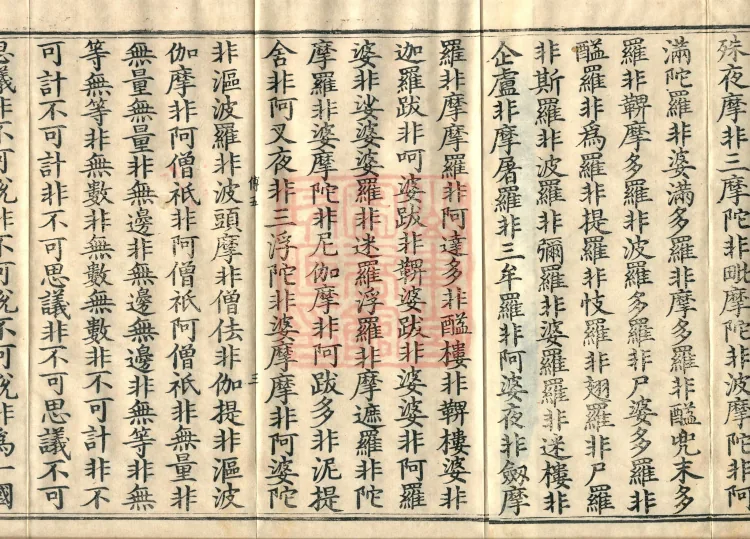 殊夜摩非三摩陀非毗摩陀非波摩陀非阿
滿陀羅非婆滿多羅非摩多羅非醯兜末多
羅非鞞摩多羅非波羅多羅非尸婆多羅非
醯羅非爲羅非提羅非忮羅非翅羅非尸羅
非斯羅非波羅非彌羅非婆羅羅非迷樓非
企盧非摩屠羅非三牟羅非阿婆夜非劒摩
羅非摩摩羅非阿達多非醯樓非鞞樓婆非
迦羅跋非呵婆跋非鞞婆跋非婆婆非阿羅
婆非娑婆婆羅非迷羅浮羅非摩遮羅非陀
摩羅非婆摩陀非尼伽摩非阿跋多非泥提
舍非阿叉夜非三浮陀非婆摩摩非阿婆陀
三
非漚波羅非波頭摩非僧佉非伽提非漚波
伽摩非阿僧祇非阿僧祇阿僧祇非無量非
無量無量非無邊非無邊無邊非無等非無
等無等非無數非無數無數非不可計非不
可計不可計非不可思議非不可思議不可
思議非不可說非不可說不可說非爲一國